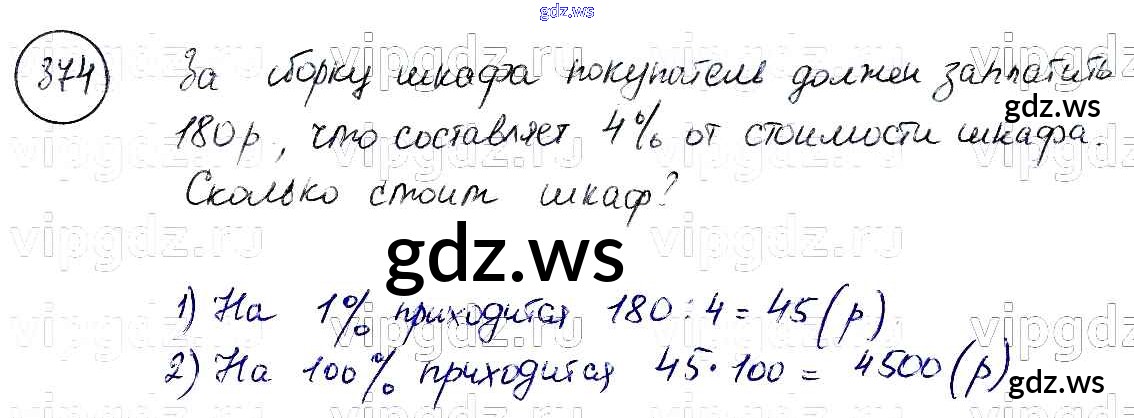 gdz.ws
374 За сборку шкафа покупатель должен заплатить
gdz.ws
180р, что составляет 4% от стоимости шкафа.
Сколько стоит шкаф?
vipgdz.ru
gdz.ws
1) На 1% приходится 180 : 4 = 45 (р)
2) На 100% приходится 45 · 100 = 4500 (р)
gdz.ws